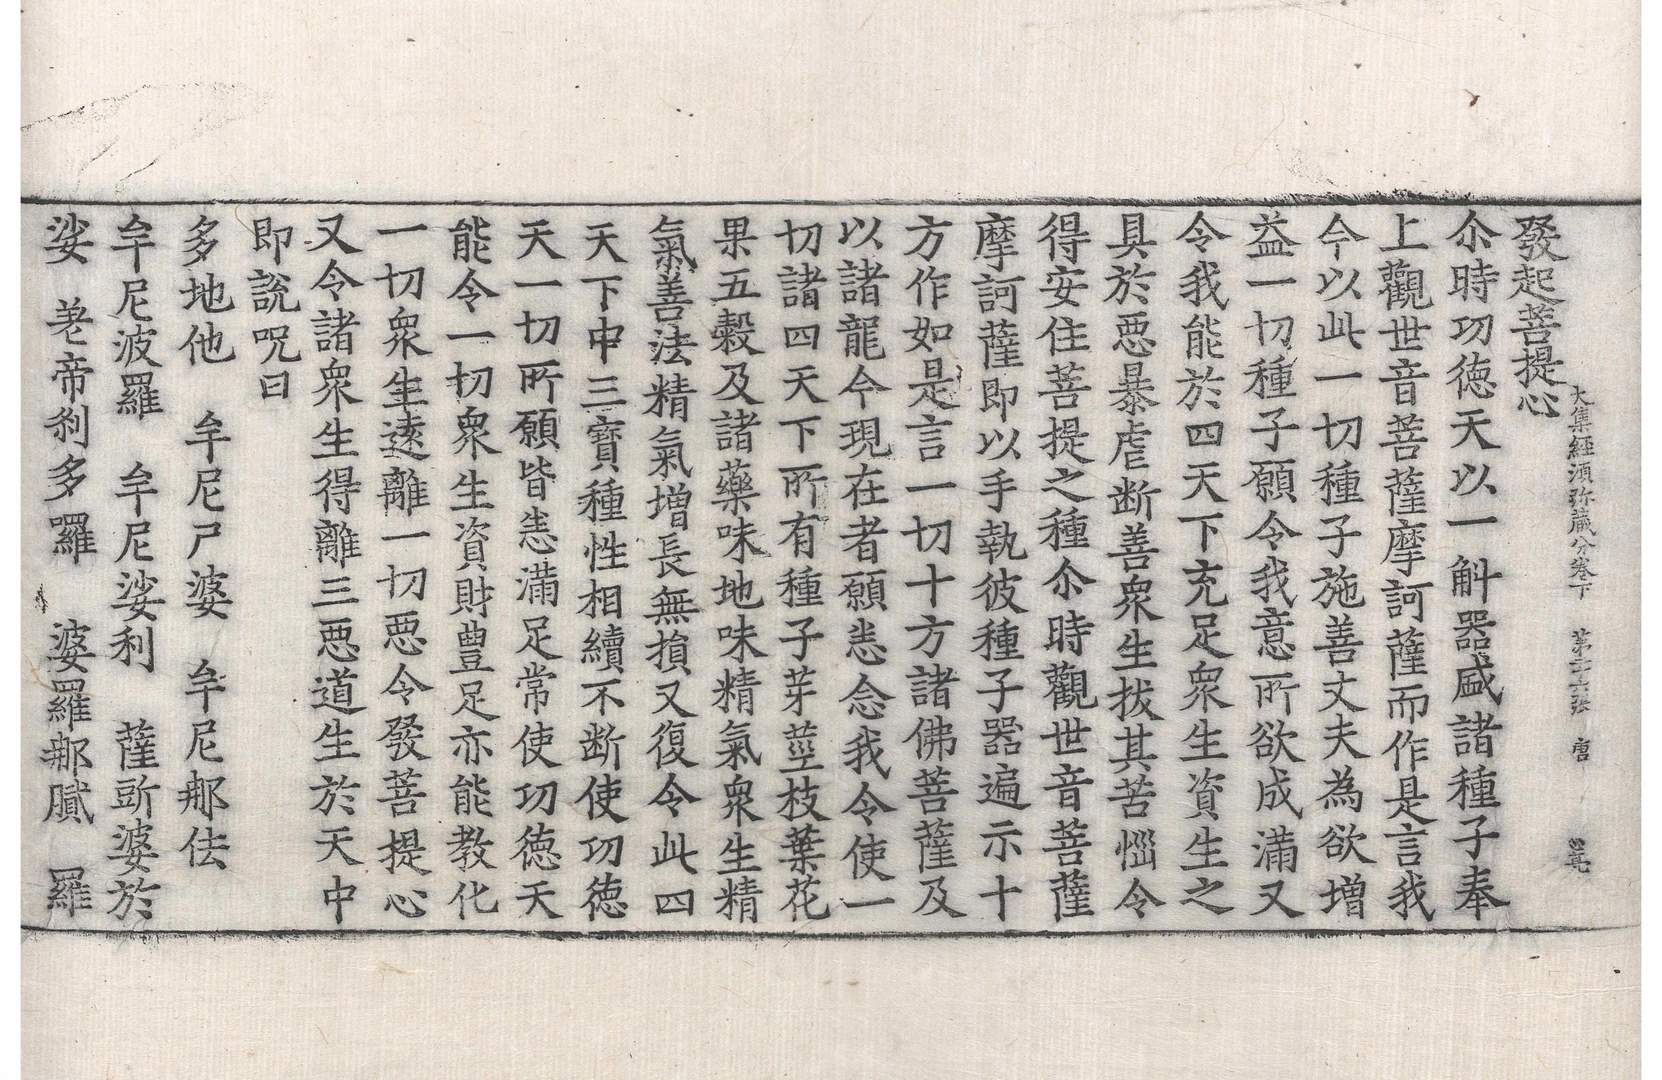 發起菩提心
大集經須弥藏分卷下 第二六張 唐
尒時功德天以一斛器盛諸種子奉
上觀世音菩薩摩訶薩而作是言我
今以此一切種子施善丈夫為欲增
益一切種子願令我意所欲成滿又
令我能於四天下充足衆生資生之
具於惡暴虐断善衆生拔其苦惱令
得安住菩提之種尒時觀世音菩薩
摩訶薩即以手執彼種子器遍示十
方作如是言一切十方諸佛菩薩及
以諸龍今現在者願恙念我令使一
切諸四天下所有種子芽莖枝葉花
果五穀及諸藥味地味精氣衆生精
氣善法精氣增長無損又復令此四
天下中三寶種性相續不断使功德
天一切所願皆恙滿足常使功德天
能令一切衆生資財豊足亦能教化
一切衆生遠離一切惡令發菩提心
又令諸衆生得離三惡道生於天中
即說呪曰
多地他 牟尼尸婆 牟尼那佉
牟尼波羅 牟尼娑利 薩䟽婆於
娑 差帝利多囉 婆羅那膩 羅